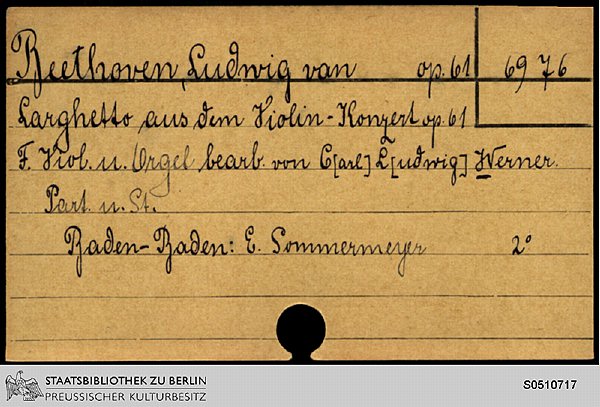 Beethoven, Ludwig van op. 61 69 76
Larghetto aus dem Violin-Konzert op. 61
F. Viol. u. Orgel bearb. von C[arl] L[udwig] Werner.
Part. u. St.
Baden-Baden: E. Sommermeyer 2°
STAATSBIBLIOTHEK ZU BERLIN
PREUSSISCHER KULTURBESITZ
S0510717